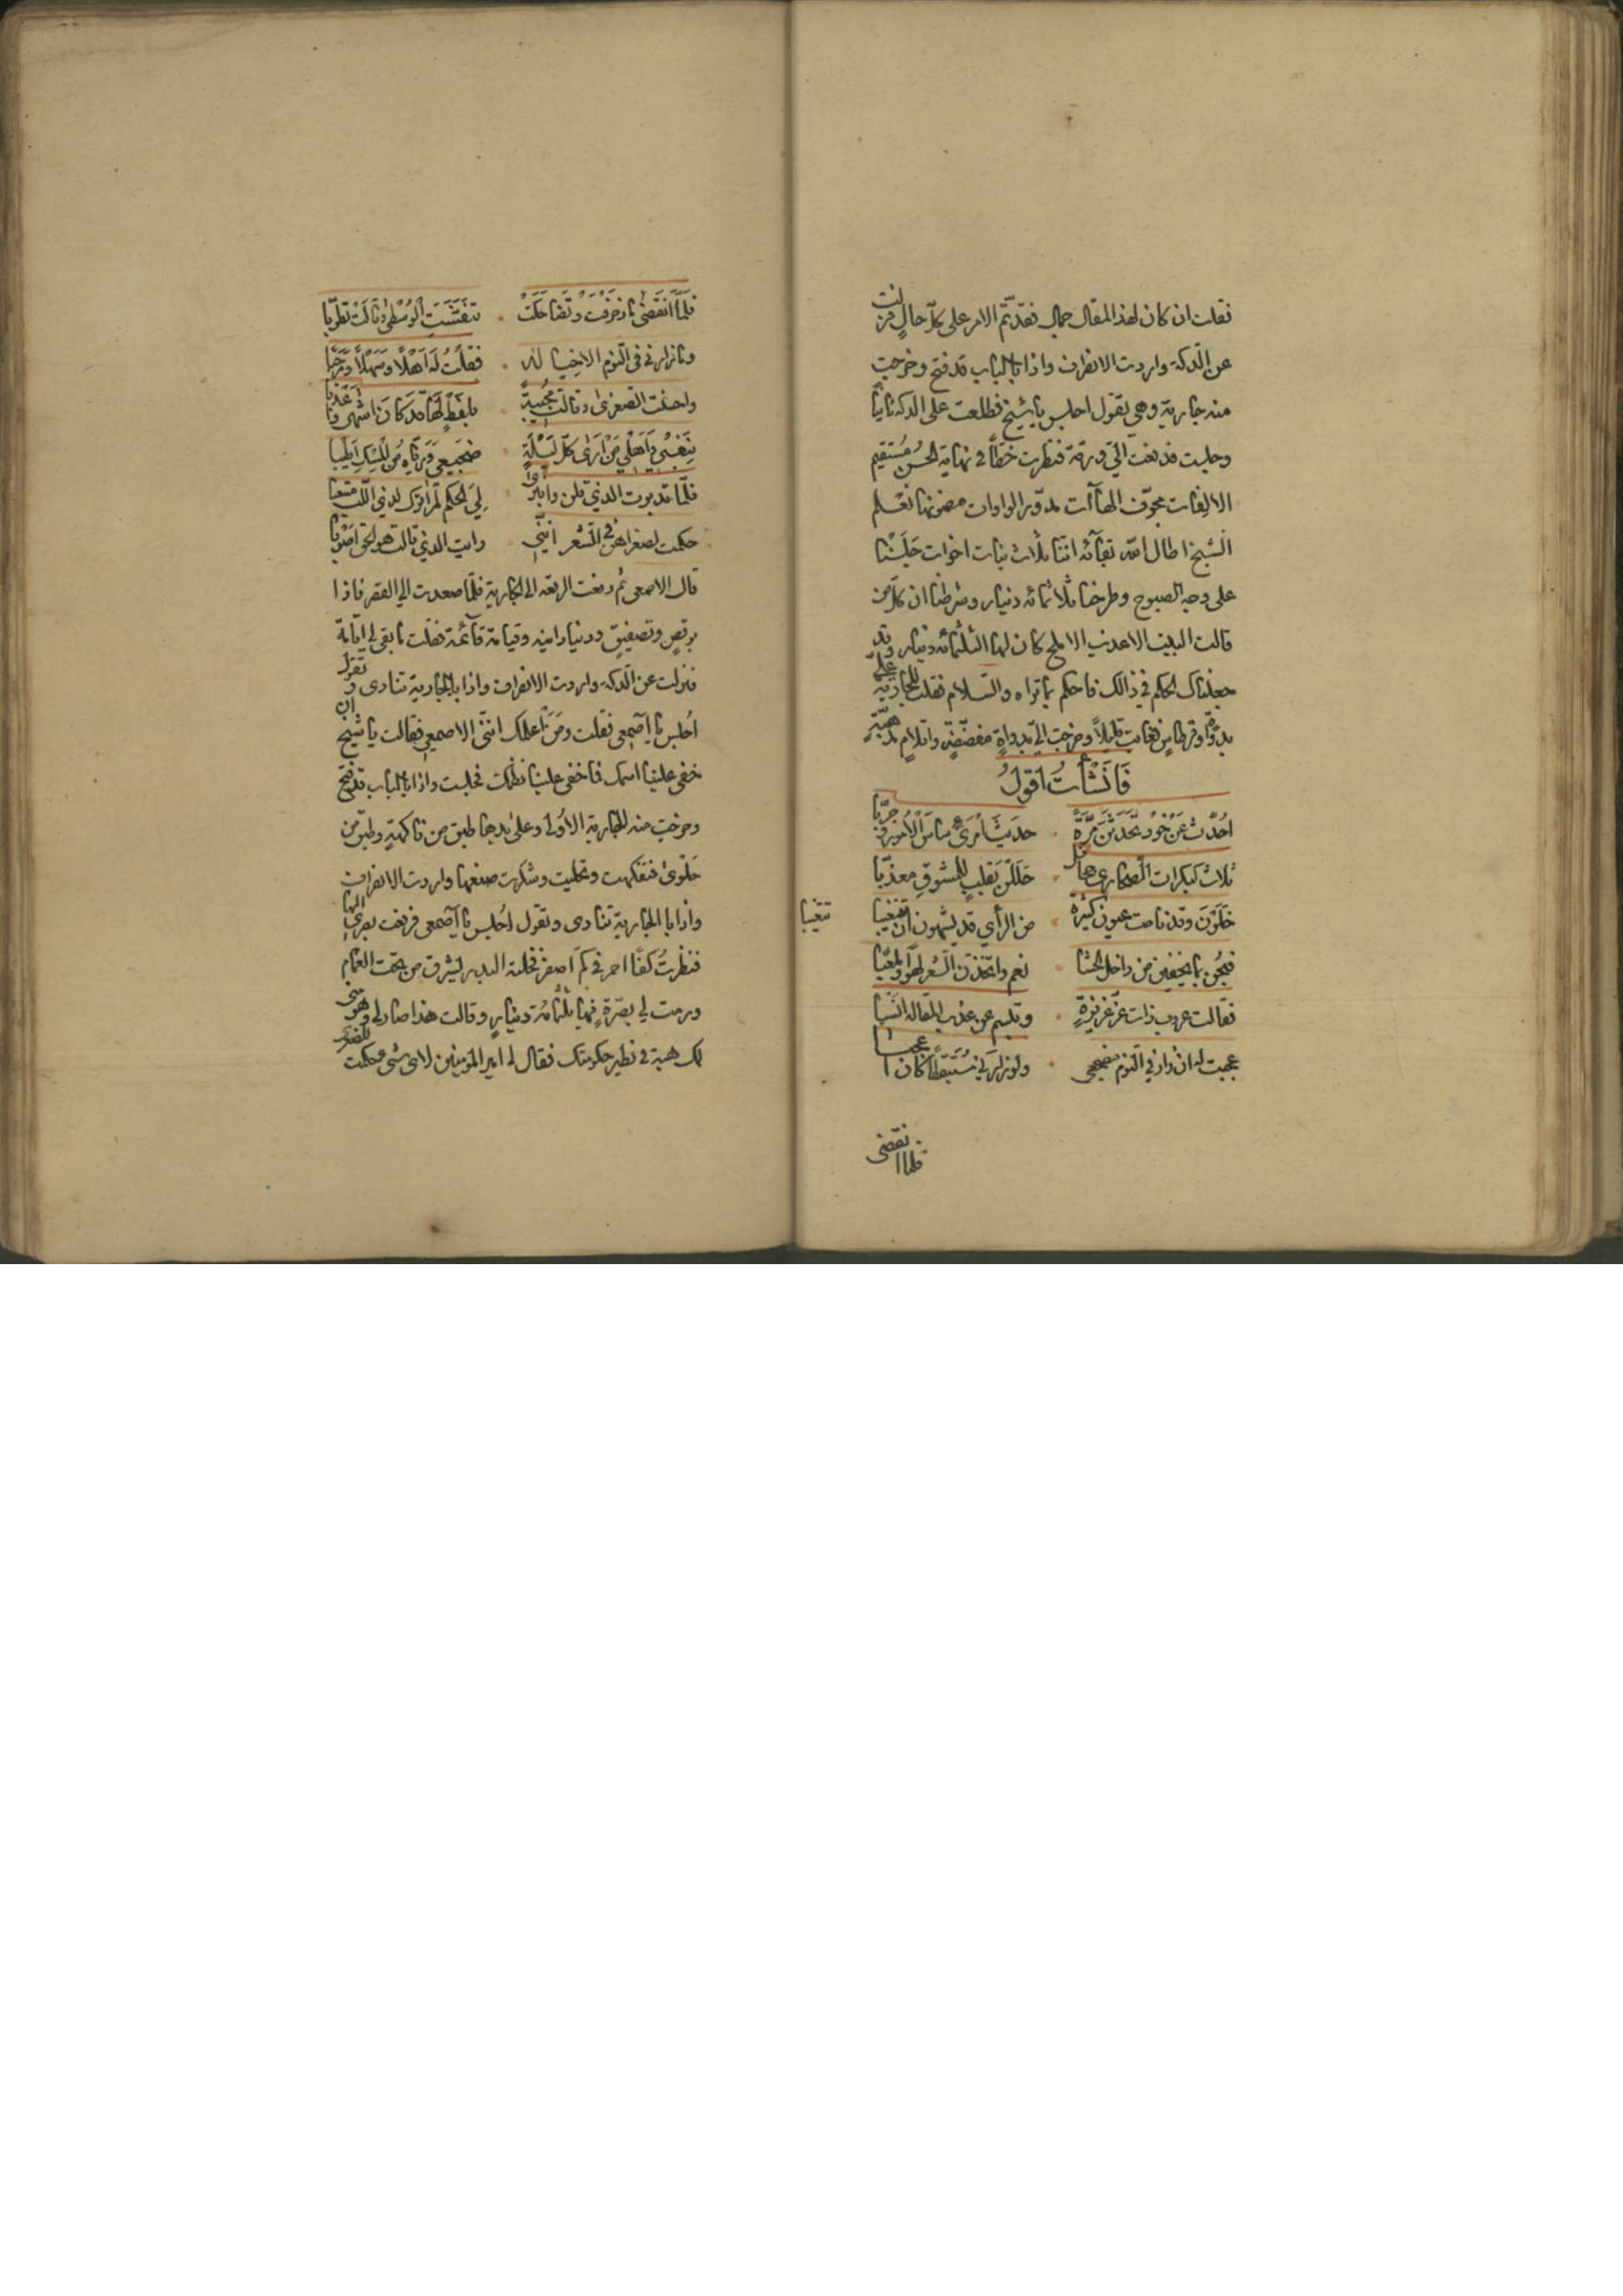 فقلت ان كان لهذ المقال جمال فقد تمّ الامر على كلّ حالٍ فنزلت
عن الدكة واردت الانصراف واذا بالباب قد فتح وخرجت
منه جارية وهى تقول اجلس يا شيخ فطلعت على الدكه ثانياً
وجلست فدفعت الىّ ورقة فنظرت خطّاً فى نهاية الحسن مُستقيم
الالفات مجوّف الهاآت مدوّر الواوات مضمونها نعلم
الشيخ اطال الله بقآئه اننا ثلاث بنات اخوات جلسنا
على وجه الصبوح وطرحنا ثلاثمائه دينار وشرطنا ان كلّ من
قالت البيت الاعذب الاملح كان لها الثلثمائه دينار وقد
جعلناك الحكم فى ذالك فاحكم بما تراه والسلام فقلت للجارية علىّ
بدواةٍ وقرطاسٍ فغابت قليلاً وخرجت الىّ بدواةٍ مفضّضةٍ واقلامٍ مذهّبةٍ
فَانشأت اقول
احُدّث عَنْ خَوْد تحَدثنَ مَرّةً حديثَ امْرئ ساسَ الاُمورَ وجرّبا
ثلاث كبكرات الصحارى جحافل حَلَلْنَ بقلبٍ للمشوقِ معذّبا
خَلَوْنَ وقد نامت عيون كثيرة من الرأي قد يشهون ان تغيبا
تغيبا
فبُحْن بما يخفين من داخل الحشا نعم واتخذن الشعر لهواً وملعبا
فقالت عروب ذات عزّ عزيزةٍ وتبسم عن عذب المقاله اشنبا
عجبت له ان زار في النوم مضجعى ولو زارني مُستيقظاً كان اعجبا
فلما انقضى
فلمّا انقضى ما زخرفت وتضاحكت تنفّستِ الوُسْطى وقالت تطرّبا
وما زارنى فى النوم الا خياله فقلتُ له اَهْلاً وسَهْلاً ومَرحبا
واحسنت الصغرى وقالت مُجيبةً بلفظٍ لهَا قد كان اشهى واعذبا
بنَفْسى وَاَهْلي مَنْ ارَى كلّ ليْلَةٍ ضجيعى وَريّاه مُن المِسْك اطيبا
فلمّا تدبرت الذى قلن وانبرى لِيَ الحكم لم اترك لذى اللب متعبا
حكمت لصغراهنّ فى الشعر انّنى رايت الذى قالت هو الحق اصوبا
قال الاصمعى ثم دفعت الرقعه الى الجاريةِ فلمّا صعدت الى القصر فاذا
برقصٍ وتصفيقٍ ودنيا دانيه وقيامة قآئمة فقلت ما بقى لى اقامة
فنزلت عن الدكه واردت الانصراف واذا بالجارية تنادى وتقول
اُجلس يا اصمعى فقلت ومَنْ اعلمك انّنى الاصمعى فقالت يا شيخ ان
خفى علينا اسمك فما خفى علينا نظمك فجلست واذا بالباب قد فتح
وخرجت منه الجارية الاُولى وعلى يدها طبق من فاكهةٍ وطبق من
حَلْوى فتفكهت وتحليت وشكرت صنعها واردت الانصراف
واذا با الجارية تنادى وتقول اُجلس يا اصمعى فرفعت بصرى اليها
فنظرتُ كفًّا احمر في كمّ اصفر فخلته البدر يشرق من تحت الغمام
ورمت لى بصّرةٍ فيها ثلثمائة دينارٍ وقالت هذا صار لى وهو منى
لك هبة فى نظير حكومتك فقال لى امير المؤمنين لاى شى حكمت للصغرى